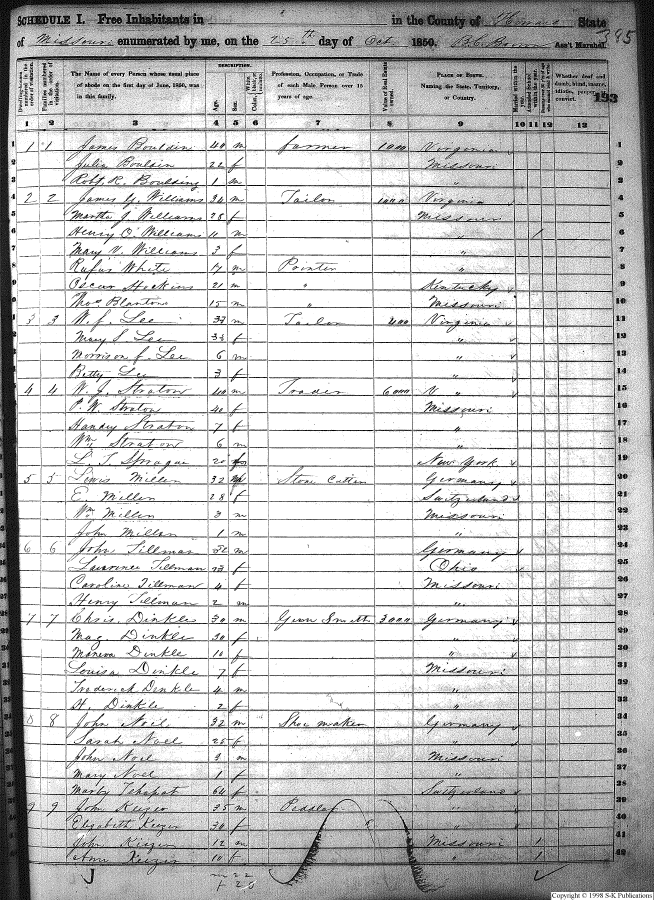 SCHEDULE I. Free Inhabitants in in the County of State
of Missouri enumerated by me, on the 25th day of Oct 1850. Ass't Marshal.
395
193
DESCRIPTION.
Dwelling-houses numbered in the order of visitation. Families numbered in the order of visitation. The Name of every Person whose usual place of abode on the first day of June, 1850, was in this family. Age. Sex. Color, White, black, or mulatto. Profession, Occupation, or Trade of each Male Person over 15 years of age. Value of Real Estate owned. PLACE OF BIRTH. Naming the State, Territory, or Country. Married within the year. Whether deaf and dumb, blind, insane, idiotic, pauper, or convict.
1 2 3 4 5 6 7 8 9 10 11 12 13
1 1 James Bouldin 40 m farmer 1000 Virginia
Julia Bouldin 22 f Missouri
Robt. R. Boulding 1 m "
2 2 James Y. Williams 34 m Tailor 1000 Virginia
Martha J Williams 28 f Missouri
Henry O. Williams 11 m " 1
Mary V. Williams 3 f "
Rufus White 17 m Painter "
Oscar Hockins 21 m " Kentucky
Thos Blanton 15 m " Missouri
3 3 W. f. Lee 33 m Tailor 400 Virginia
Mary S. Lee 34 f "
Morrison f. Lee 6 m "
Betty Lee 3 f "
4 4 W. J. Straton 40 m Trader 6000 V "
P. W. Straton 40 f Missouri
Handy Straton 7 f "
Wm Straton 6 m "
L T. Sprague 20 New York
5 5 Lewis Millen 32 m Stone Cutter Germany
E. Millen 28 f Switzerland
Wm Millen 3 m Missouri
John Millen 1 m "
6 6 John Tillman 32 m Germany
Lawrence Tillman 23 f Ohio
Caroline Tillman 4 f Missouri
Henry Tillman 2 m "
7 7 Chris. Dinkle 30 m Gun Smith 3000 Germany
Mag Dinkle 30 f "
Dinkle 10 f "
Louisa Dinkle 7 f Missouri
Frederick Dinkle 4 m "
H. Dinkle 2 f "
8 8 John Noel 32 m Shoe maker Germany
Sarah Noel 25 f "
John Noel 3 m Missouri
Mary Noel 1 f "
64 f Switzerland
9 9 John Keizer 35 m Pedlar "
Elizabeth Keizer 30 f "
John Keizer 12 m Missouri 1
Ann Keizer 10 f " 1
m 22
f 20
Copyright © 1998 S-K Publications